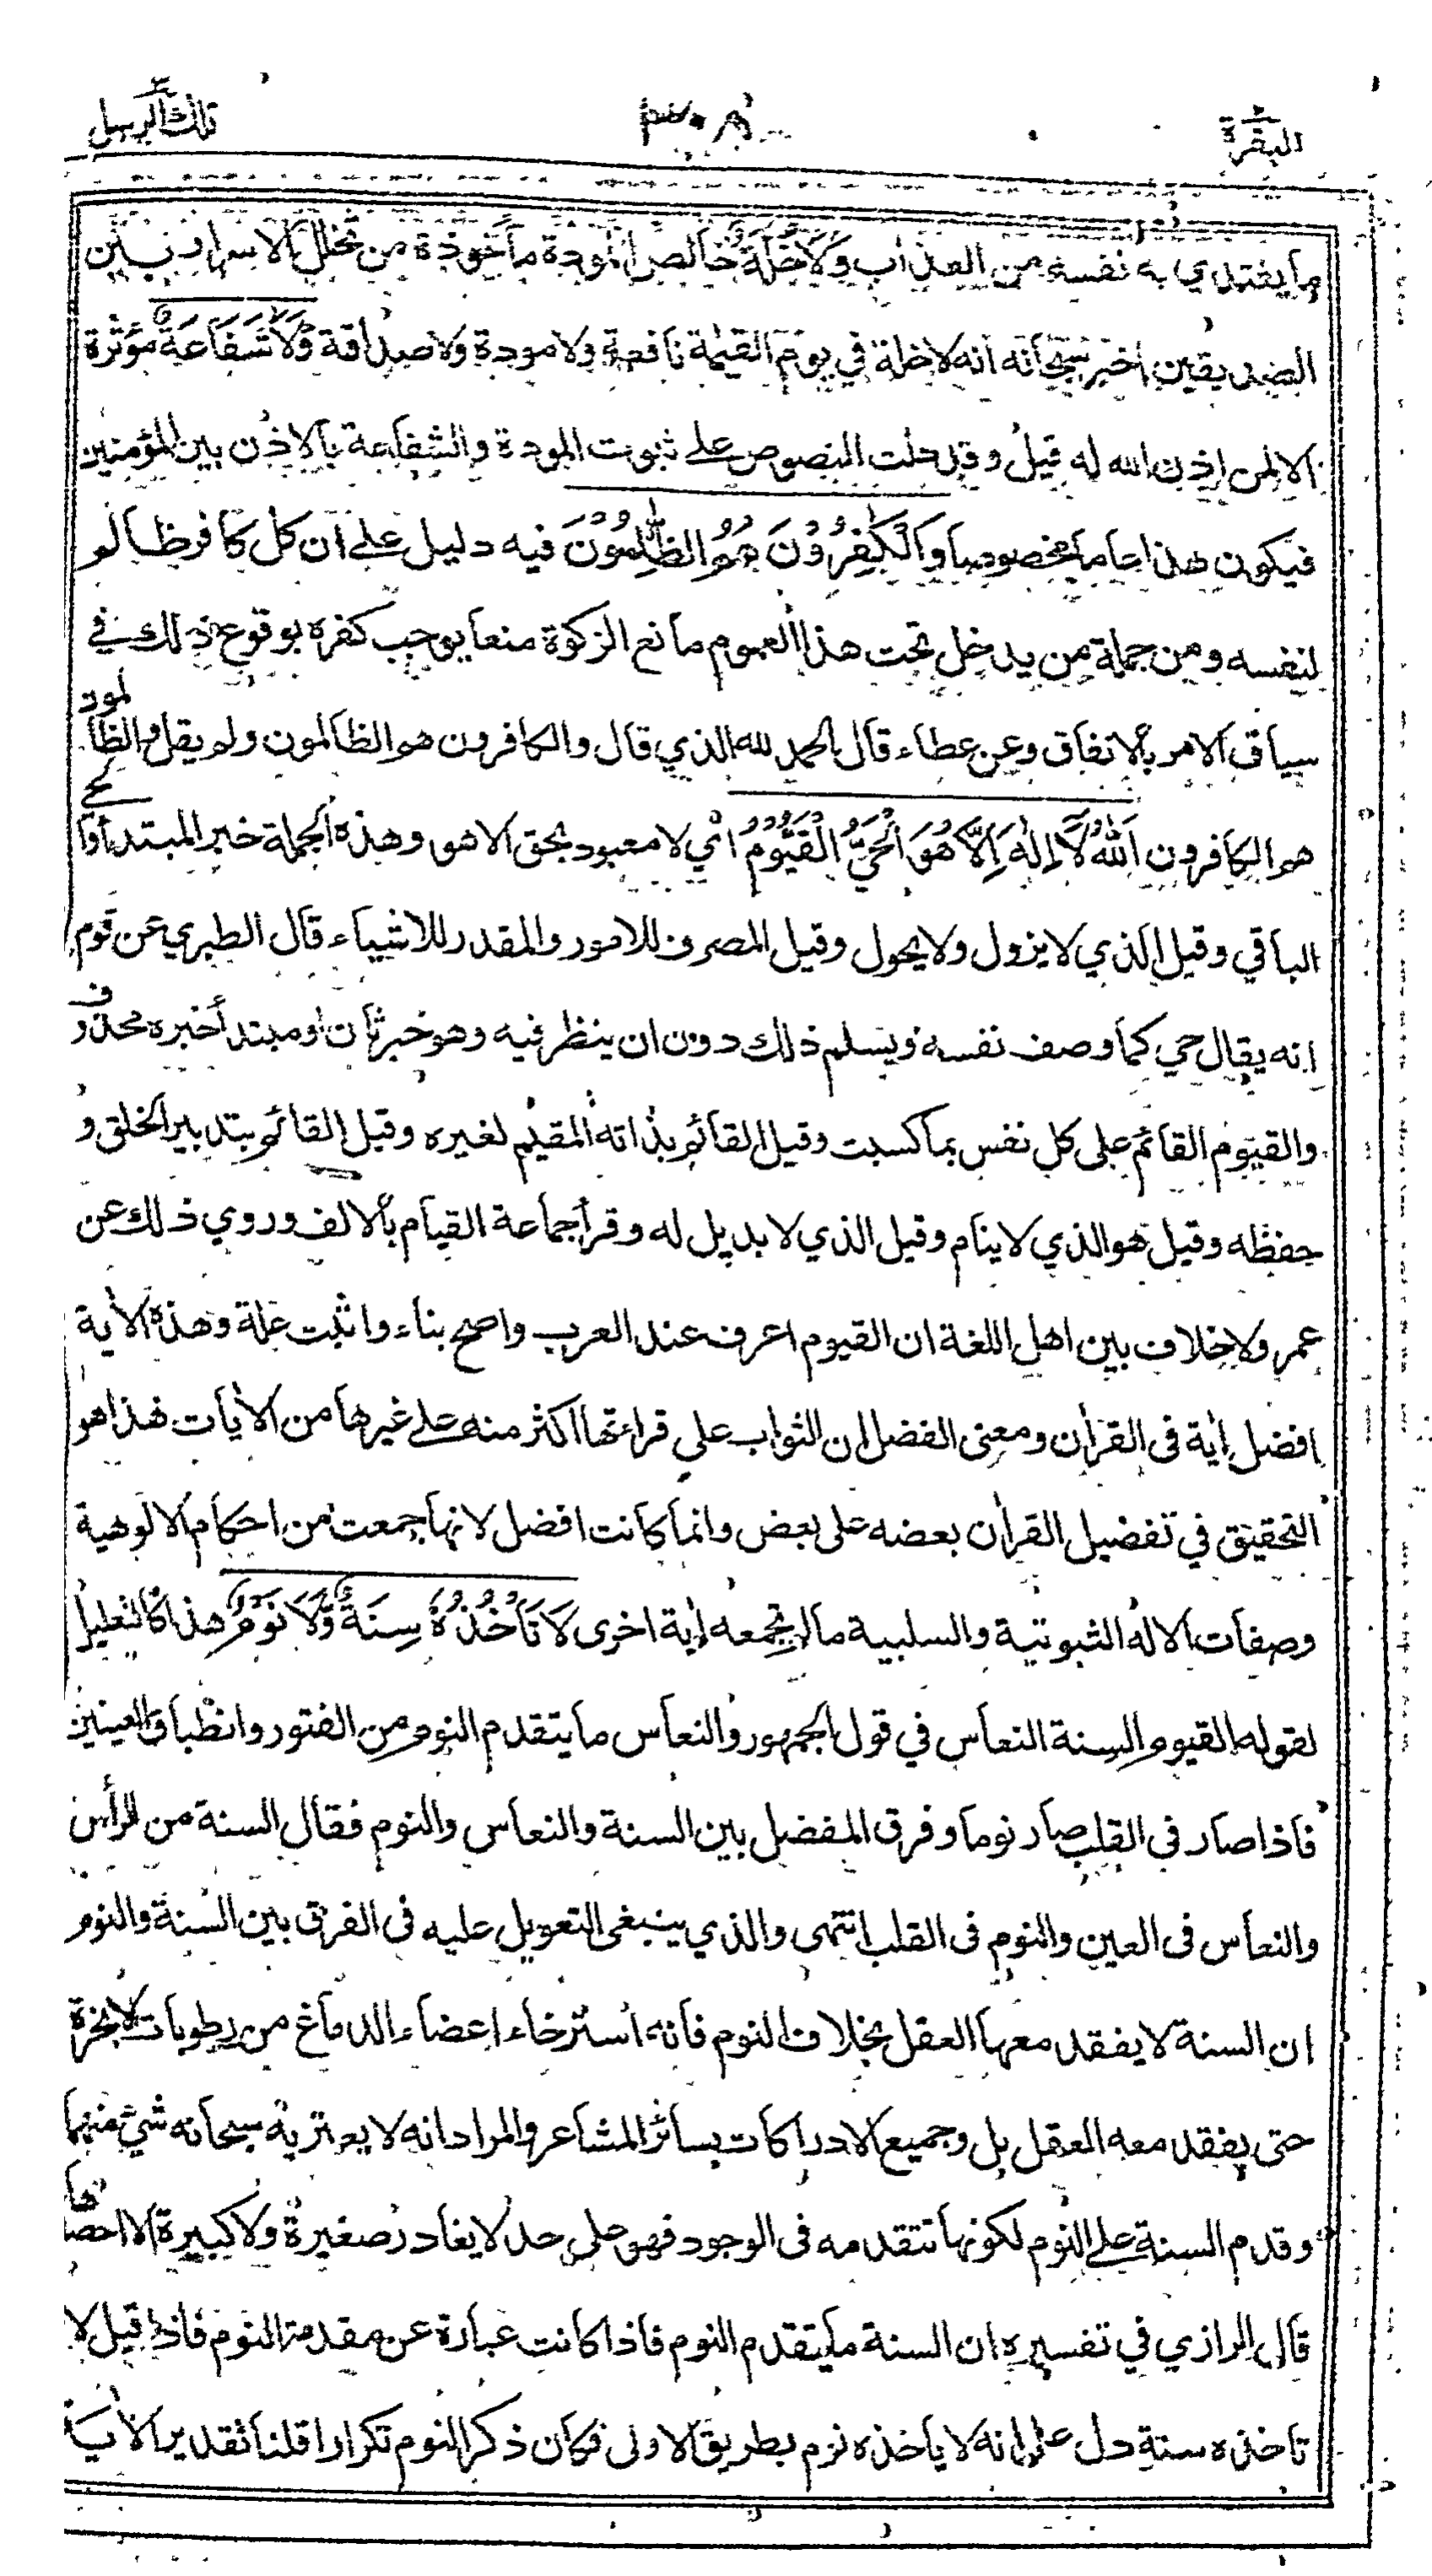 البقرة ٣٠٨ تلك الرسل
ما يفتدي به نفسه من العذاب وَلَا خُلَّةٌ خالص المودة مأخوذة من تخلل الاسرار بين
الصديقين اخبر سبحانه انه لا خلة في يوم القيٰمة نافعة ولا مودة ولا صداقة وَّلَا شَفَاعَةٌ مؤثرة
الا لمن اذن الله له قيل وقد دلت النصوص على ثبوت المودة والشفاعة بالاذن بين المؤمنين
فيكون هذا عاما مخصوصا وَالْكٰفِرُوْنَ هُمُ الظّٰلِمُوْنَ فيه دليل على ان كل كافر ظالم
لنفسه ومن جملة من يدخل تحت هذا العموم مانع الزكوة منعا يوجب كفره بوقوع ذلك في
سياق الامر بالانفاق وعن عطاء قال الحمد لله الذي قال والكافرون هم الظالمون ولم يقل والظالمون
هم الكافرون اَللّٰهُ لَآ اِلٰهَ اِلَّا هُوَ اَلْحَيُّ الْقَيُّوْمُ اي لا معبود بحق الا هو وهذه الجملة خبر المبتدأ والحي
الباقي وقيل الذي لا يزول ولا يحول وقيل المصرف للامور والمقدر للاشياء قال الطبري عن قوم
انه يقال حي كما وصف نفسه ويسلم ذلك دون ان ينظر فيه وهو خبر ثان او مبتدأ خبره محذوف
والقيوم القائم على كل نفس بما كسبت وقيل القائم بذاته المقيم لغيره وقيل القائم بتدبير الخلق و
حفظه وقيل هو الذي لا ينام وقيل الذي لا بديل له وقرأ جماعة القيام بالالف وروي ذلك عن
عمر ولا خلاف بين اهل اللغة ان القيوم اعرف عند العرب واصح بناء واثبت علة وهذه الاٰية
افضل اٰية فى القراٰن ومعنى الفضل ان الثواب على قراءتها اكثر منه على غيرها من الاٰيات هذا هو
التحقيق في تفضيل القراٰن بعضه على بعض وانما كانت افضل لانها جمعت من احكام الالوهية
وصفات الاله الثبوتية والسلبية ما لم تجمعه اٰية اخرى لَا تَأْخُذُهٗ سِنَةٌ وَّلَا نَوْمٌ هذا كالتعليل
لقوله القيوم والسنة النعاس في قول الجمهور والنعاس ما يتقدم النوم من الفتور وانطباق العينين
فاذا صار فى القلب صار نوما وفرق المفضل بين السنة والنعاس والنوم فقال السنة من الرأس
والنعاس فى العين والنوم فى القلب انتهى والذي ينبغى التعويل عليه فى الفرق بين السنة والنوم
ان السنة لا يفقد معها العقل بخلاف النوم فانه استرخاء اعضاء الدماغ من رطوبات الابخرة
حتى يفقد معه العقل بل وجميع الادراكات بسائر المشاعر والمراد انه لا يعتريه سبحانه شيء منهما
وقدم السنة على النوم لكونها تتقدمه فى الوجود فهو على حد لا يغادر صغيرة ولا كبيرة الا احصاها
قال الرازي في تفسيره ان السنة ما يتقدم النوم فاذا كانت عبارة عن مقدمة النوم فاذا قيل لا
تاخذه سنة دل على انه لا يأخذه نوم بطريق الاولى فكان ذكر النوم تكرارا قلنا تقدير الاٰية